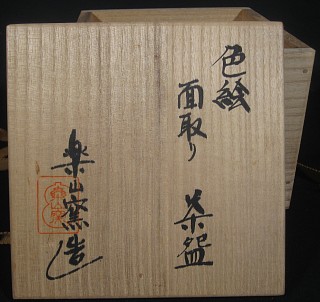 色絵
面取り
茶盌
楽山窯造